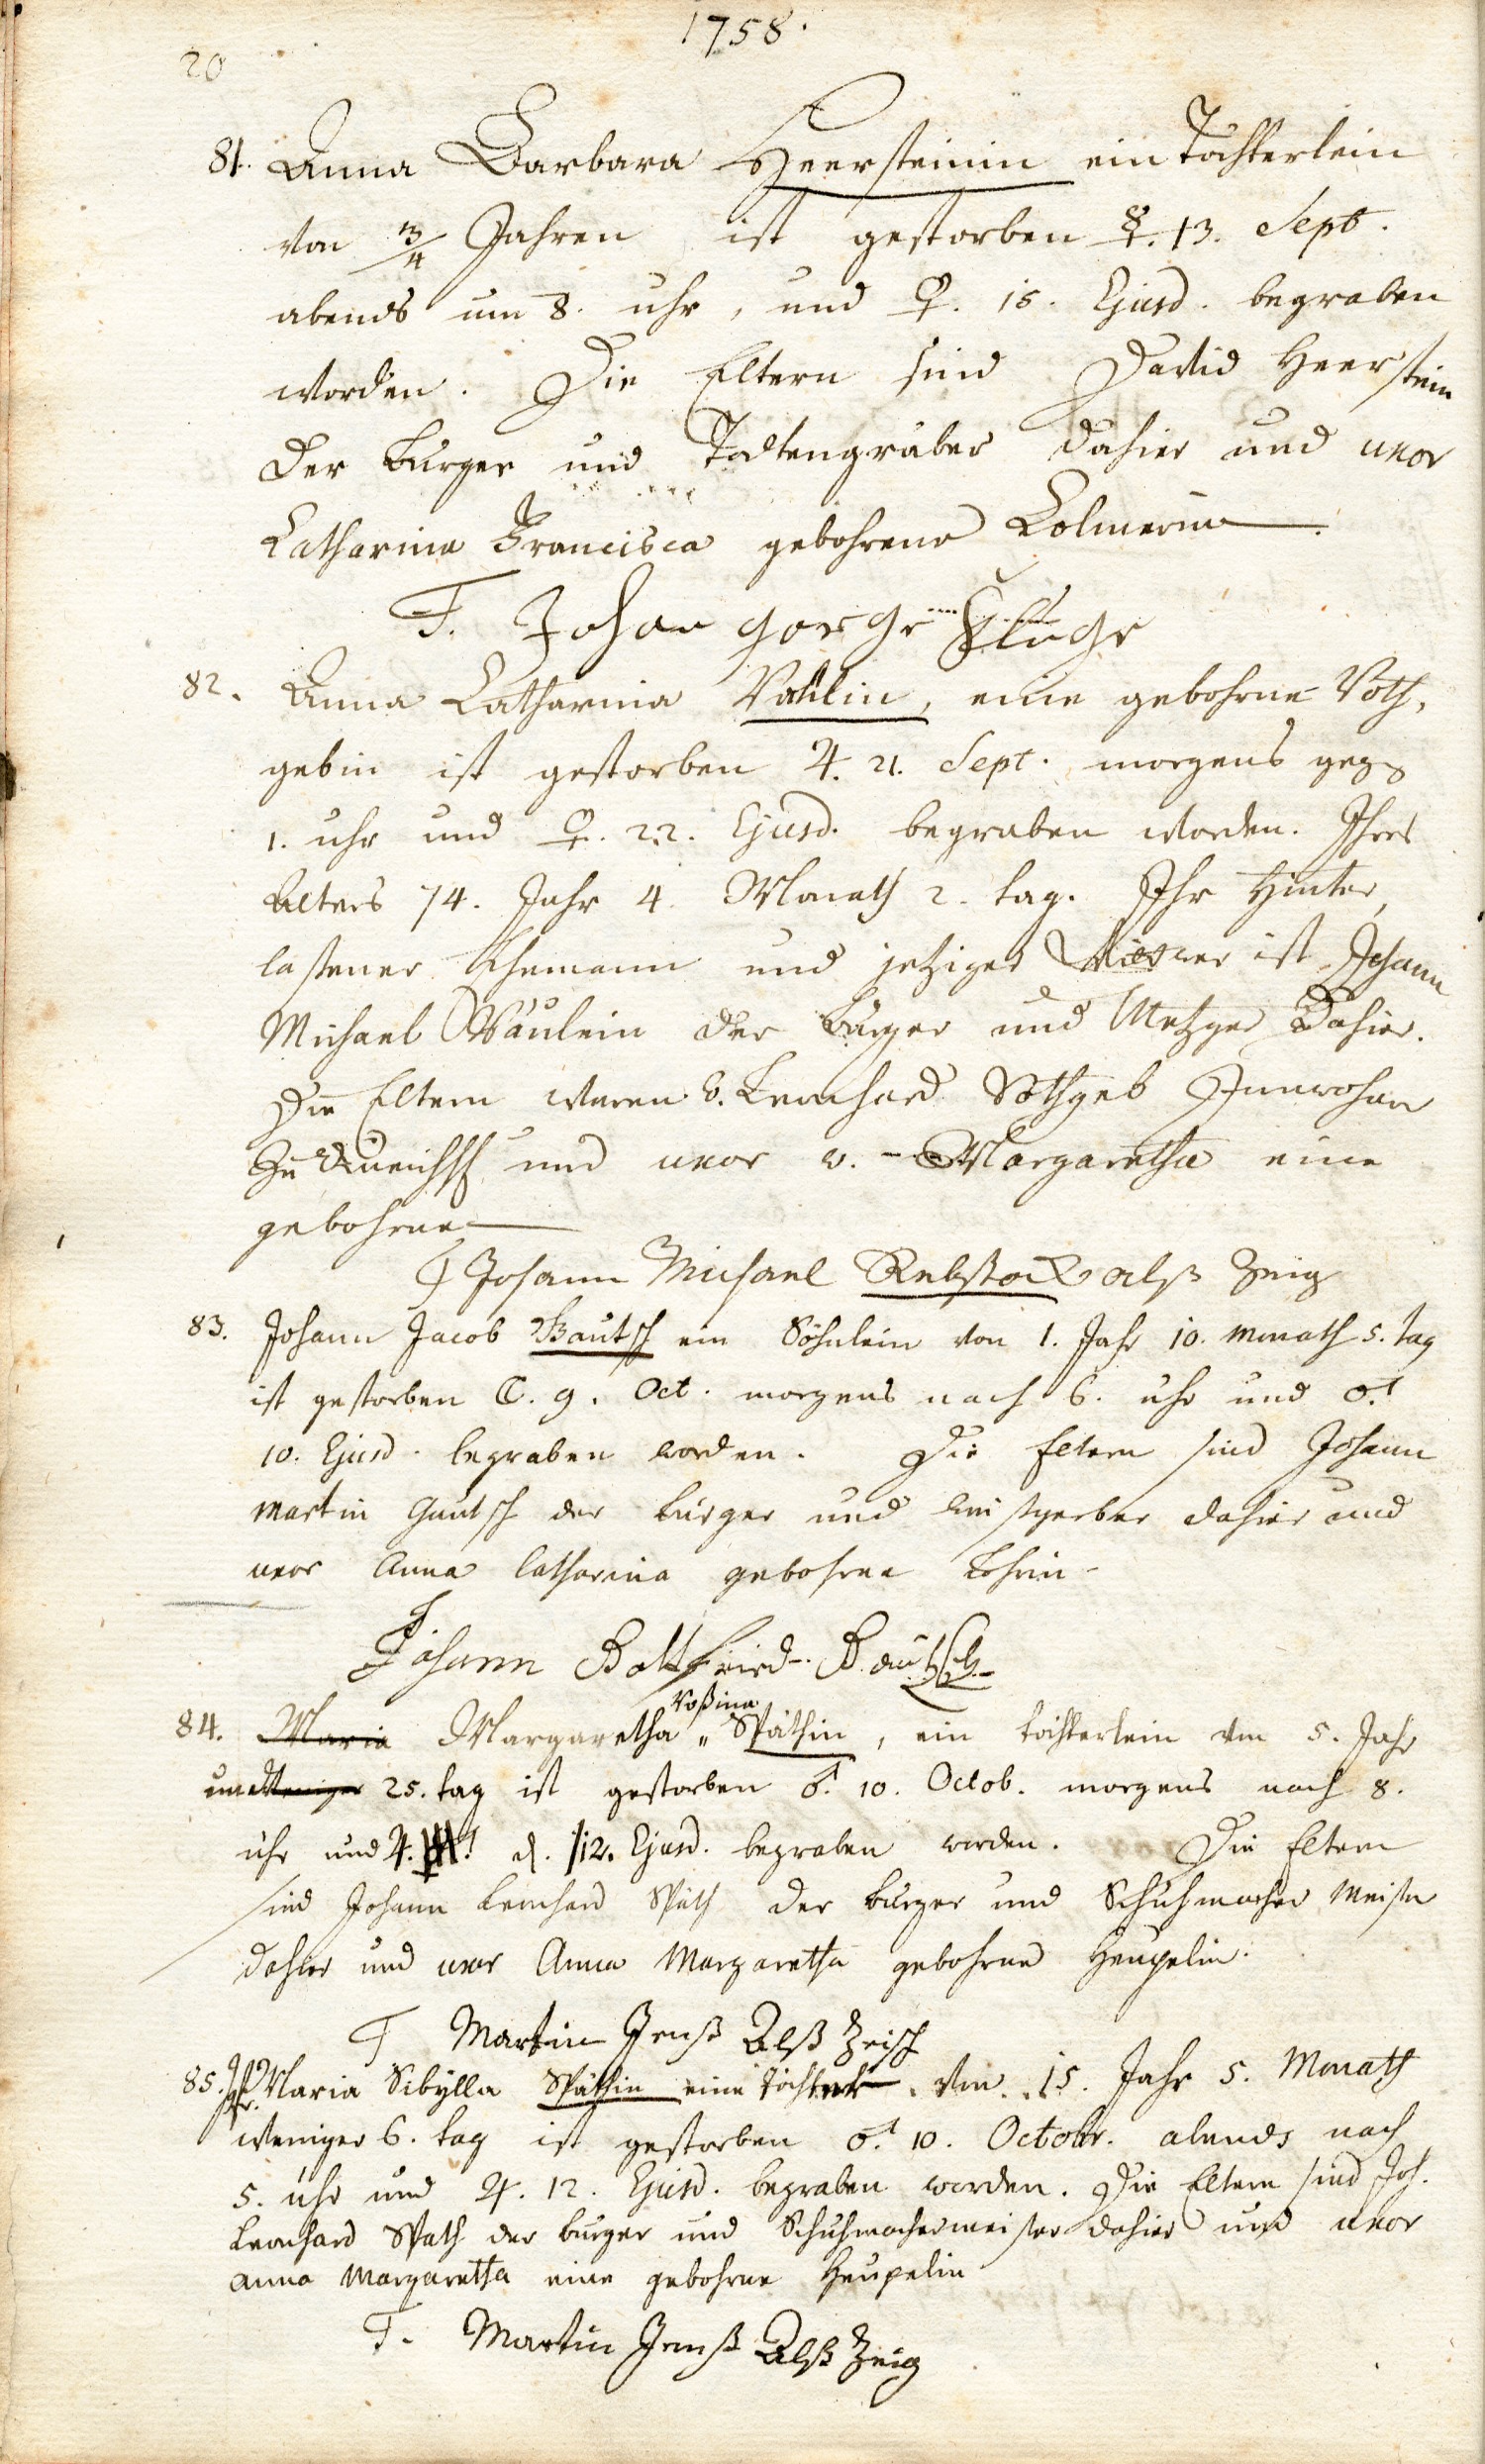 1758.
20
81. Anna Barbara Heersteinin ein Töchterlein
von 3/4 Jahren ist gestorben ☿. 13. Sept.
abends um 8. uhr, und ♀. 15. Ejusd. begraben
worden. Die Eltern sind David Heerstein
der Burger und Todtengräber dahier und uxor
Catharina Francisca gebohrene Colmerin.
T. Johan gorge
82. Anna Catharina, eine gebohrne Voth,
gebin ist gestorben ♃. 21. Sept. morgens geg.
1. uhr und ♀. 22. Ejusd. begraben worden. Ihres
Alters 74. Jahr 4. Monath 2. tag. Ihr hinter,
laßener Ehemann und jetziger Wittwer ist Johann
Michael Wäulein der Burger und Metzger dahier.
Die Eltern waren v. Leonhard Vothgeb Innwohner
zu und uxor v. - Margaretha eine
gebohrne
T Johann Michael Rebstock alß Zeig
83. Johann Jacob Bautsch ein Söhnlein von 1. Jahr 10. Monath 5. tag
ist gestorben ☾. 9. Oct. morgens nach 6. uhr und ♂.
10. Ejusd. begraben worden. Die Eltern sind Johann
Martin Gautsch der burger und weißgerber dahier und
uxor Anna Catharina gebohrne
Johann Gottfried Bautsch
84. Maria Margaretha " Späthin, ein töchterlein von 5. Jahr
und weniger 25. tag ist gestorben ♂. 10. Octob. morgens nach 8.
uhr und ♃. d. 12. Ejusd. begraben worden. Die Eltern
sind Johann Leonhard Späth der burger und Schuhmacher Meister
dahier und uxor Anna Margaretha gebohrne Heupelin.
T Martin Alß Zeich
85. Maria Sibylla Späthin eine Tochter von 15. Jahr 5. Monath
weniger 6. tag ist gestorben ♂. 10. Octobr. abends nach
5. uhr und ♃. 12. Ejusd. begraben worden. Die Eltern sind Joh.
Leonhard Späth der burger und Schuhmachermeister dahier und uxor
anna Margaretha eine gebohrne Heupelin
T. Martin Alß Zeig